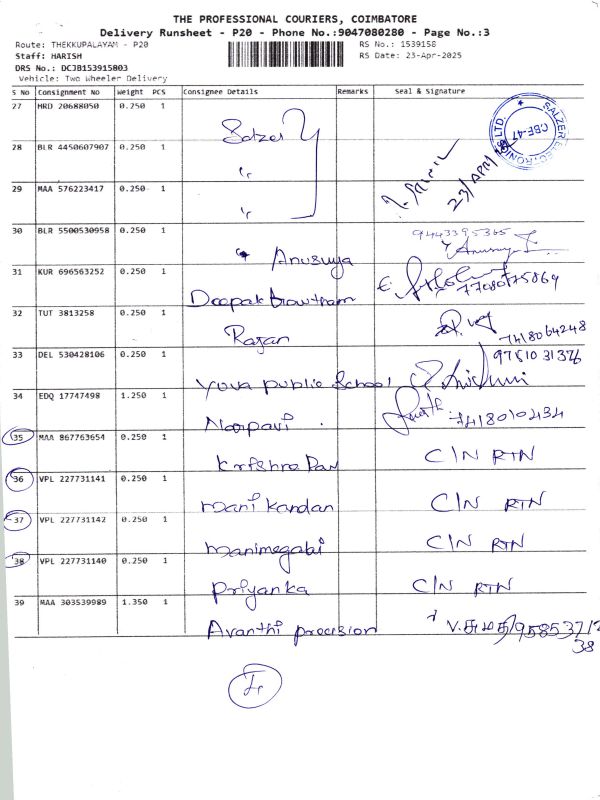 THE PROFESSIONAL COURIERS, COIMBATORE
Delivery Runsheet - P20 - Phone No.:9047080280 - Page No.:3
Route: THEKKUPALAYAM - P20
Staff: HARISH
DRS No.: DCJB153915803
Vehicle: Two Wheeler Delivery
RS No.: 1539158
RS Date: 23-Apr-2025
S No Consignment No Weight PCS Consignee Details Remarks Seal & Signature
27 MRD 20688050 0.250 1 Salzer
28 BLR 4450607907 0.250 1 "
29 MAA 576223417 0.250 1 "
23/APR
SALZER ELECTRONICS LTD.
CBE-47
30 BLR 5500530958 0.250 1 Anusuya 9443395365
31 KUR 696563252 0.250 1 Deepak Gowtham 7708075869
32 TUT 3813258 0.250 1 Rajan 7418064248
33 DEL 530428106 0.250 1 Yuva public School 9781031376
34 EDQ 17747498 1.250 1 7418010434
35 MAA 867763654 0.250 1 C/N RTN
36 VPL 227731141 0.250 1 mani kandan C/N RTN
37 VPL 227731142 0.250 1 C/N RTN
38 VPL 227731140 0.250 1 Priyanka C/N RTN
39 MAA 303539989 1.350 1 Avanthi precision